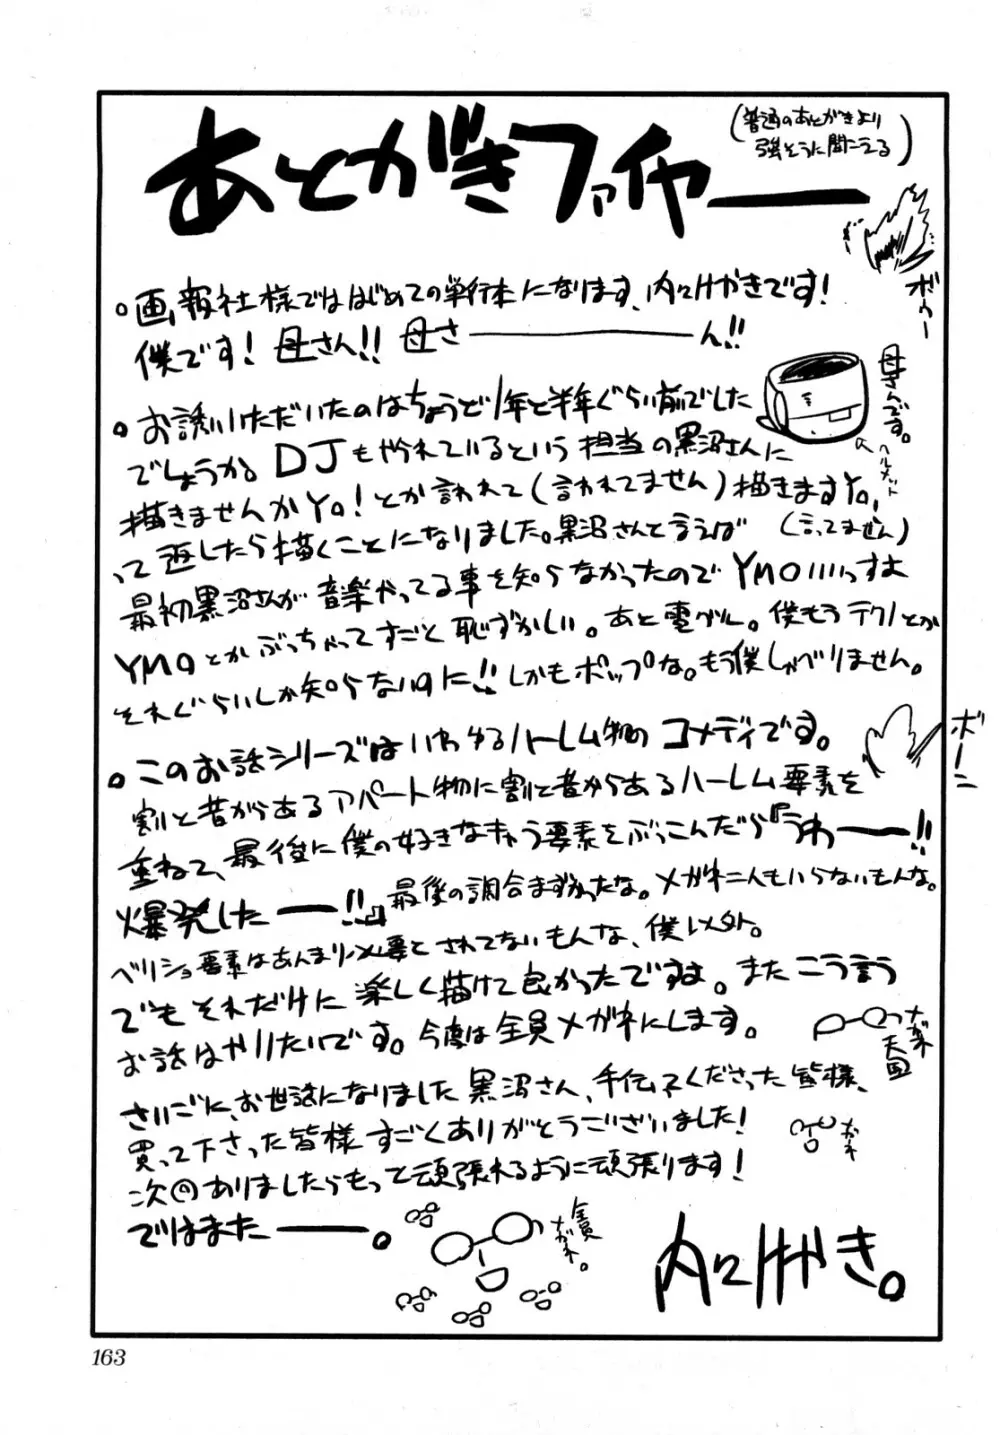 あとがきファイヤー
(普通のあとがきより
強そうに聞こえる)
ボゥー
。画報社様でははじめての単行本になります、内々けやきです!
僕です! 母さん!! 母さ―――ん!!
母さんです。
ヘルメット
。お誘いいただいたのはちょうど1年と半年ぐらい前でした
でしょうか。DJもやられているという担当の黒沼さんに
描きませんかYo!とか言われて(言われてません)描きますYo,
って返したら描くことになりました。黒沼さんと言えば (言ってません)
最初黒沼さんが音楽やってる事を知らなかったのでYMOいいっすよ
YMOとかぶっちゃってすごく恥ずかしい。あと電グル。僕もうテクノとか
それぐらいしか知らないのに!!しかもポップな。もう僕しゃべりません。
。このお話シリーズはいわゆるハーレム物のコメディです。
ボーン
割と昔からあるアパート物に割と昔からあるハーレム要素を
重ねて、最後に僕の好きなキャラ要素をぶっこんだら『うわー――!!
爆発したー――!!』最後の調合まずかったな。メガネ二人もいらないもんな。
ベリショ要素はあんまり必要とされてないもんな、僕以外。
でもそれだけに楽しく描けて良かったですよ。またこう言う
お話はやりたいです。今度は全員メガネにします。
メガネ
天国
さいごに、お世話になりました黒沼さん、手伝ってくださった皆様、
買って下さった皆様すごくありがとうございました!
メガネ
次回ありましたらもっと頑張れるように頑張ります!
ではまたー――。
全員
メガネ。
内々けやき。
163